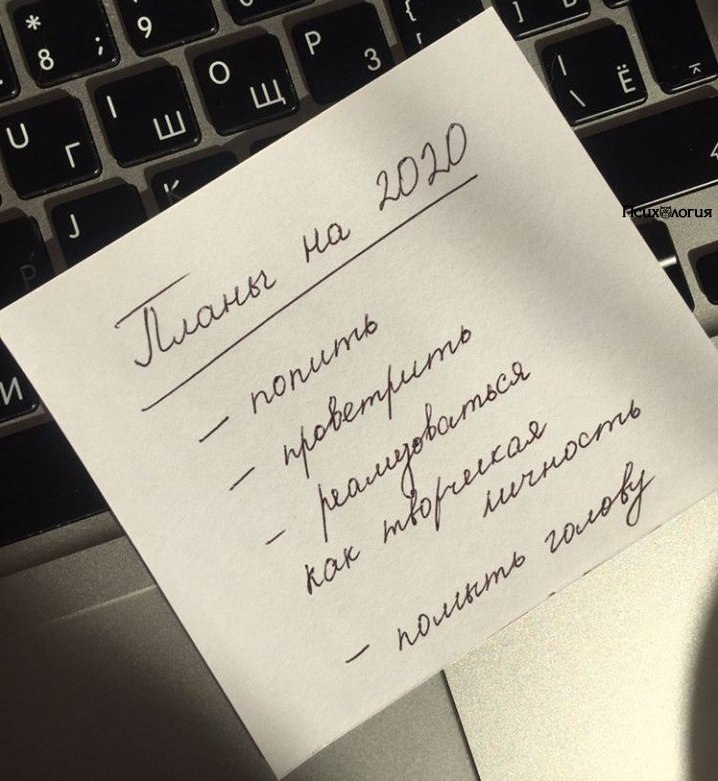 * 9 {
8 ; 9
O P [ ] |
U I Щ З \ Ё
Г Ш
J K
И
Планы на 2020
- попить
- проветрить
- реализоваться
как творческая
личность
- помыть голову
Психология